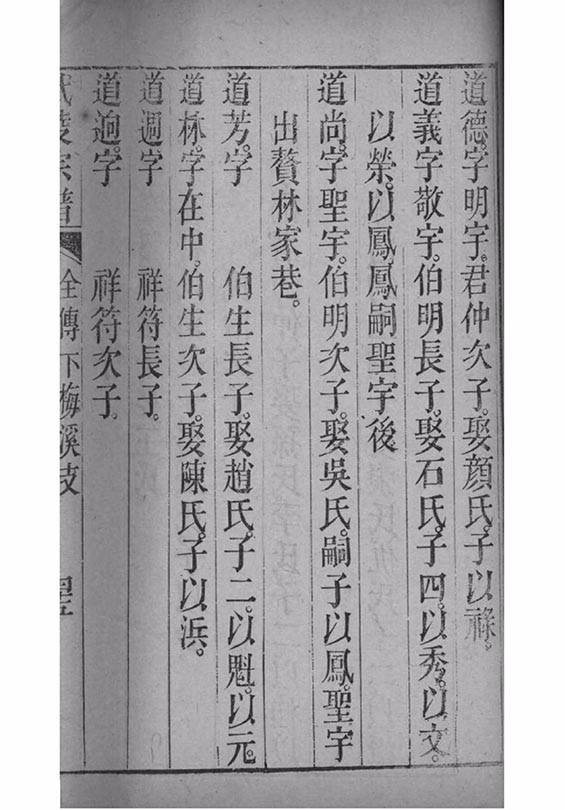 道德。字明宇。君仲次子。娶顏氏。子以祿。
道義字敬宇。伯明長子。娶石氏。子四。以秀。以文。
以榮。以鳳。鳳嗣聖宇後
道尚。字聖宇。伯明次子。娶吳氏。嗣子以鳳。聖宇
出贅林家巷。
道芳。字　　伯生長子。娶趙氏。子二。以魁。以元。
道林。字在中。伯生次子。娶陳氏。子以浜。
道週字　　祥符長子。
道逈。字　　祥符次子。
宗譜　全傳下梅溪支